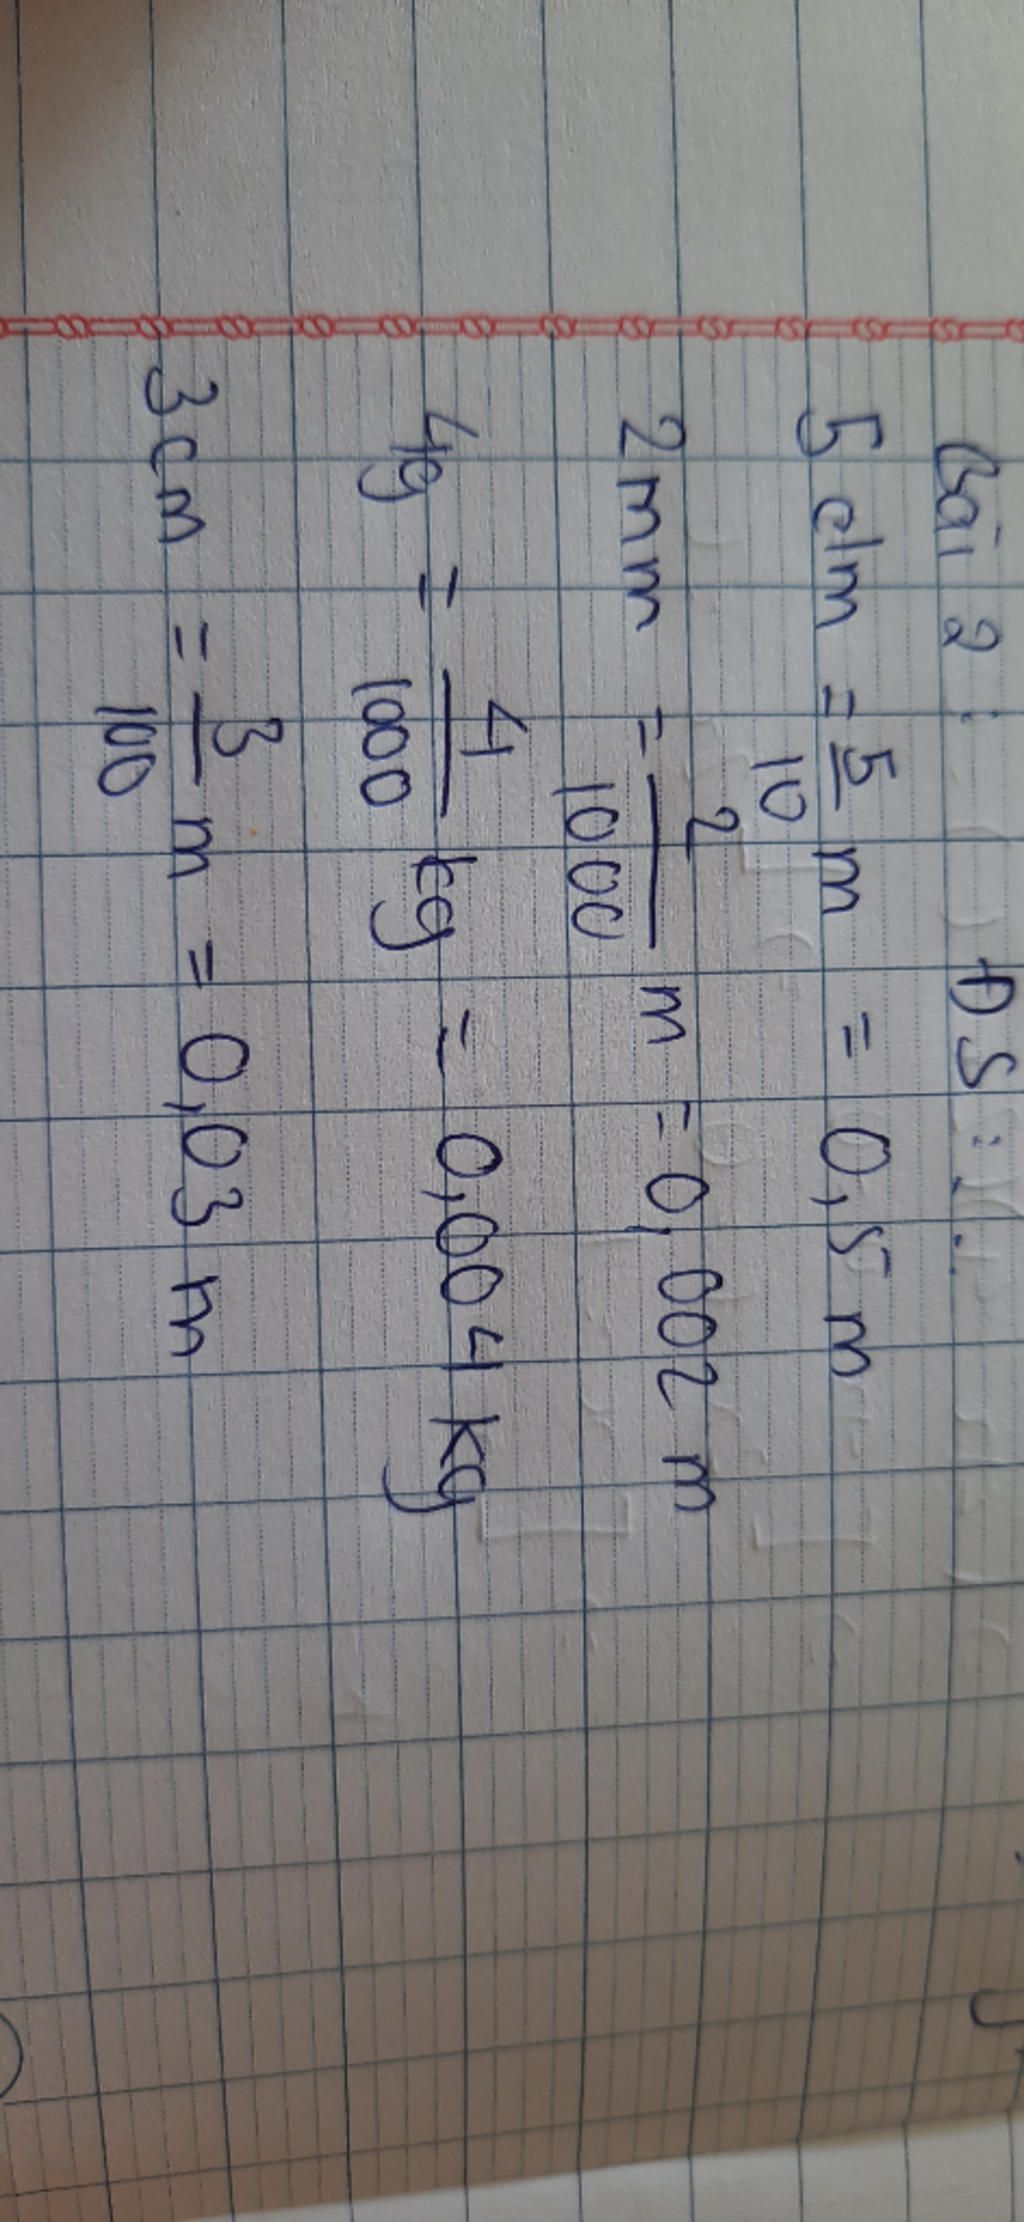 Bài 2: ĐS:...
5 dm = 5/10 m = 0,5 m
2 mm = 2/1000 m = 0,002 m
4g = 4/1000 kg = 0,004 kg
3cm = 3/100 m = 0,03 m